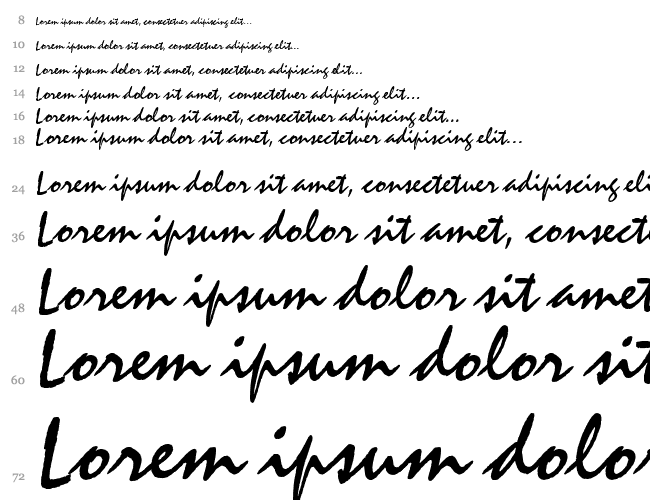 8 Lorem ipsum dolor sit amet, consectetuer adipiscing elit...
10 Lorem ipsum dolor sit amet, consectetuer adipiscing elit...
12 Lorem ipsum dolor sit amet, consectetuer adipiscing elit...
14 Lorem ipsum dolor sit amet, consectetuer adipiscing elit...
16 Lorem ipsum dolor sit amet, consectetuer adipiscing elit...
18 Lorem ipsum dolor sit amet, consectetuer adipiscing elit...
24 Lorem ipsum dolor sit amet, consectetuer adipiscing eli
36 Lorem ipsum dolor sit amet, consect
48 Lorem ipsum dolor sit amet
60 Lorem ipsum dolor sit
72 Lorem ipsum dolor